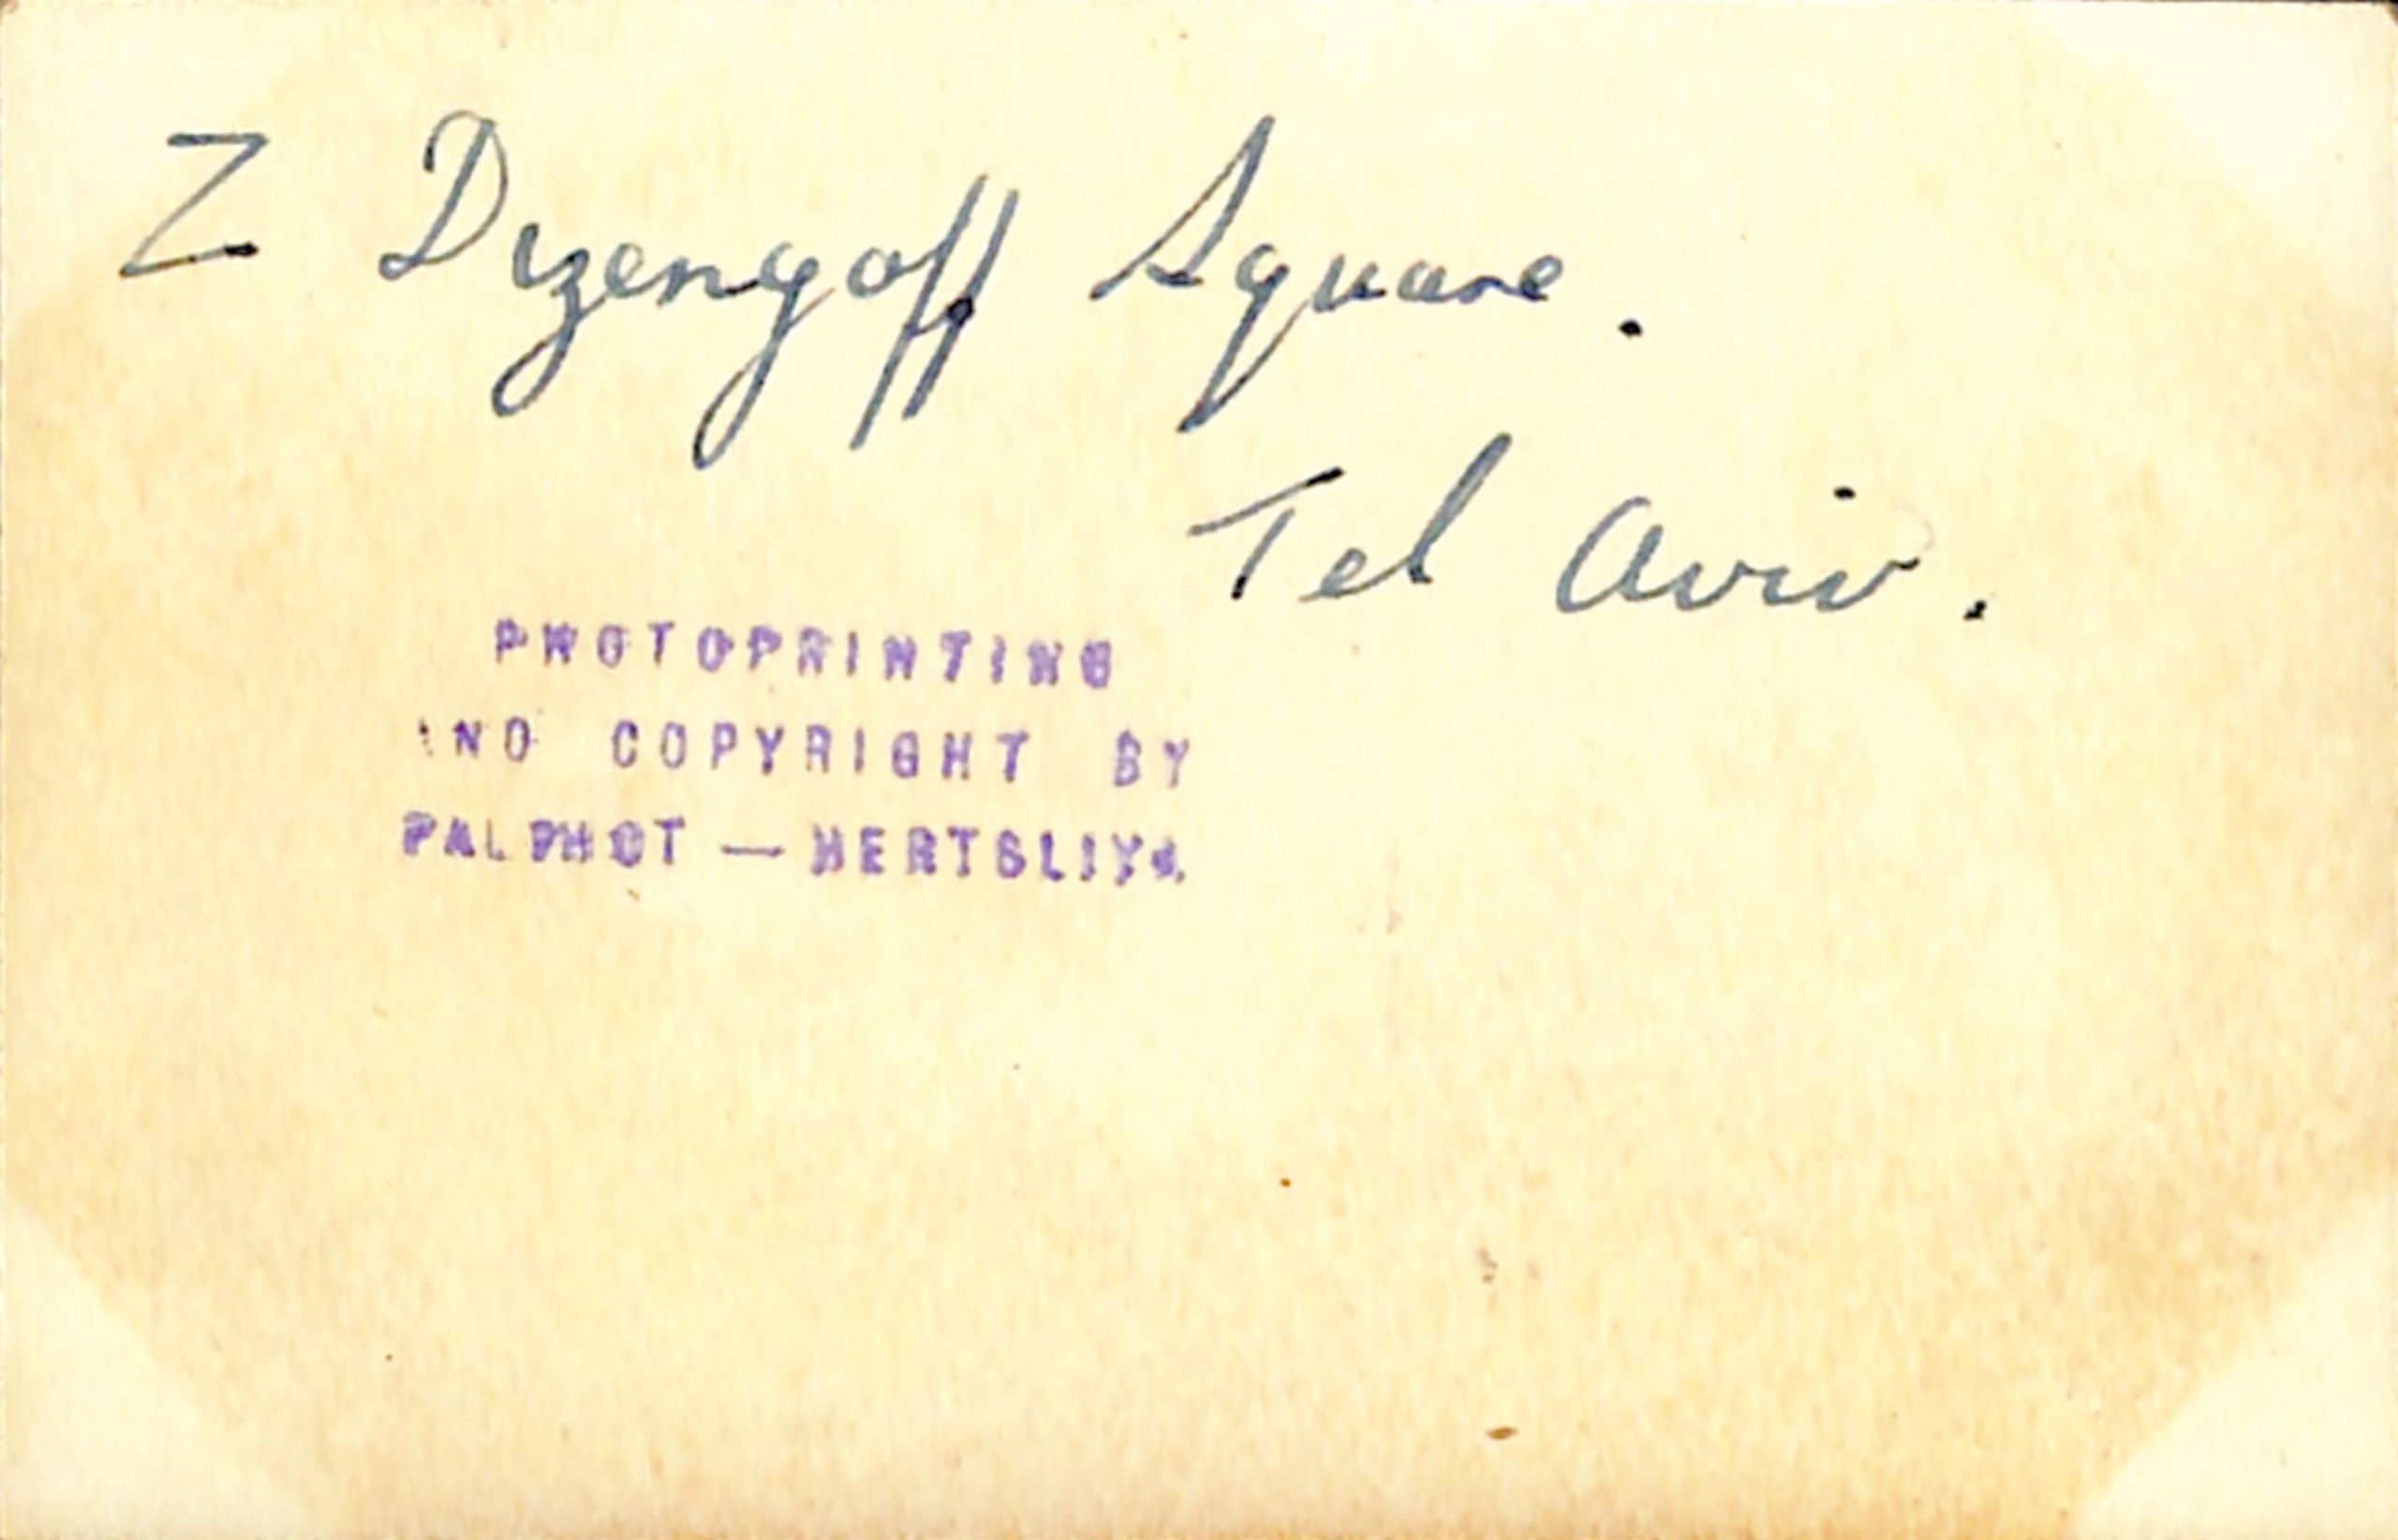 Z Dizengoff Square.
Tel Aviv.
PHOTOPRINTING
AND COPYRIGHT BY
PALPHOT — HERTSLIYA